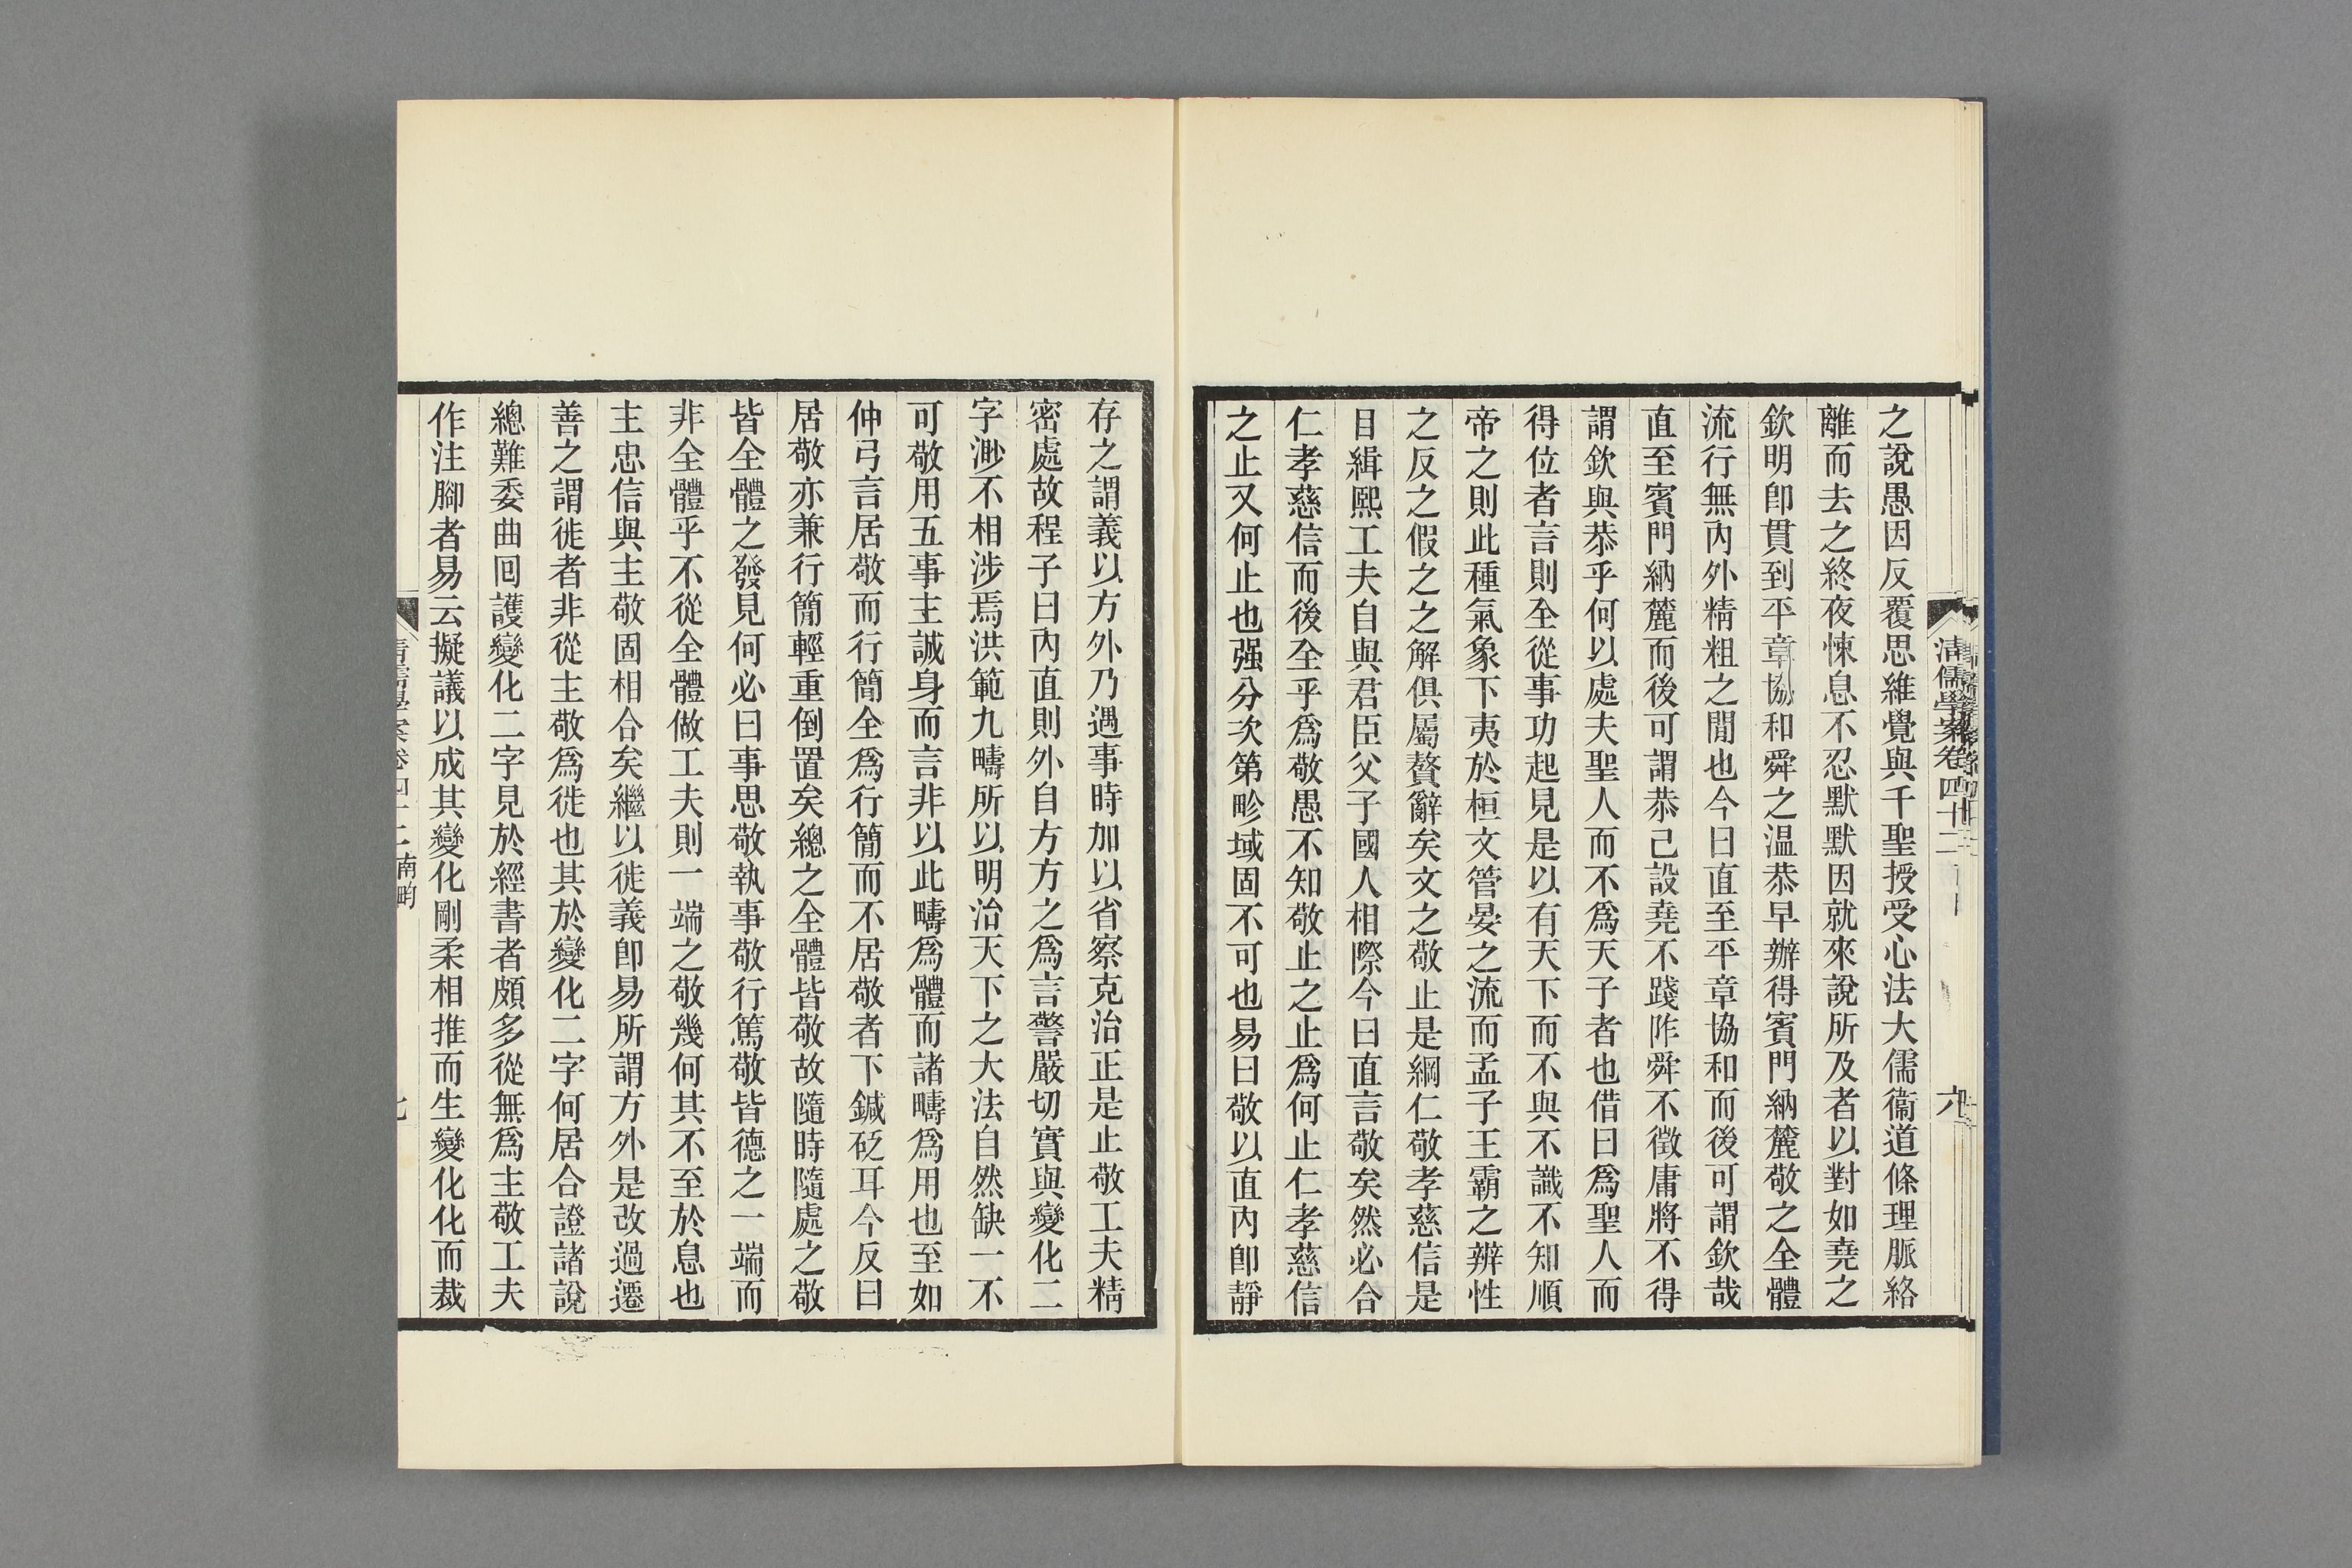 清儒學案卷四十二
六
之說愚因反覆思維覺與千聖授受心法大儒衞道條理脈絡
離而去之終夜悚息不忍默默因就來說所及者以對如堯之
欽明卽貫到平章協和舜之温恭早辦得賓門納麓敬之全體
流行無內外精粗之閒也今曰直至平章協和而後可謂欽哉
直至賓門納麓而後可謂恭己設堯不踐阼舜不徵庸將不得
謂欽與恭乎何以處夫聖人而不爲天子者也借曰爲聖人而
得位者言則全從事功起見是以有天下而不與不識不知順
帝之則此種氣象下夷於桓文管晏之流而孟子王霸之辨性
之反之假之之解俱屬贅辭矣文之敬止是綱仁敬孝慈信是
目緝熙工夫自與君臣父子國人相際今曰直言敬矣然必合
仁孝慈信而後全乎爲敬愚不知敬止之止爲何止仁孝慈信
之止又何止也强分次第畛域固不可也易曰敬以直內卽靜
存之謂義以方外乃遇事時加以省察克治正是止敬工夫精
密處故程子曰內直則外自方方之爲言警嚴切實與變化二
字渺不相涉焉洪範九疇所以明治天下之大法自然缺一不
可敬用五事主誠身而言非以此疇爲體而諸疇爲用也至如
仲弓言居敬而行簡全爲行簡而不居敬者下鍼砭耳今反曰
居敬亦兼行簡輕重倒置矣總之全體皆敬故隨時隨處之敬
皆全體之發見何必曰事思敬執事敬行篤敬皆德之一端而
非全體乎不從全體做工夫則一端之敬幾何其不至於息也
主忠信與主敬固相合矣繼以徙義卽易所謂方外是改過遷
善之謂徙者非從主敬爲徙也其於變化二字何居合證諸說
總難委曲囘護變化二字見於經書者頗多從無爲主敬工夫
作注腳者易云擬議以成其變化剛柔相推而生變化化而裁